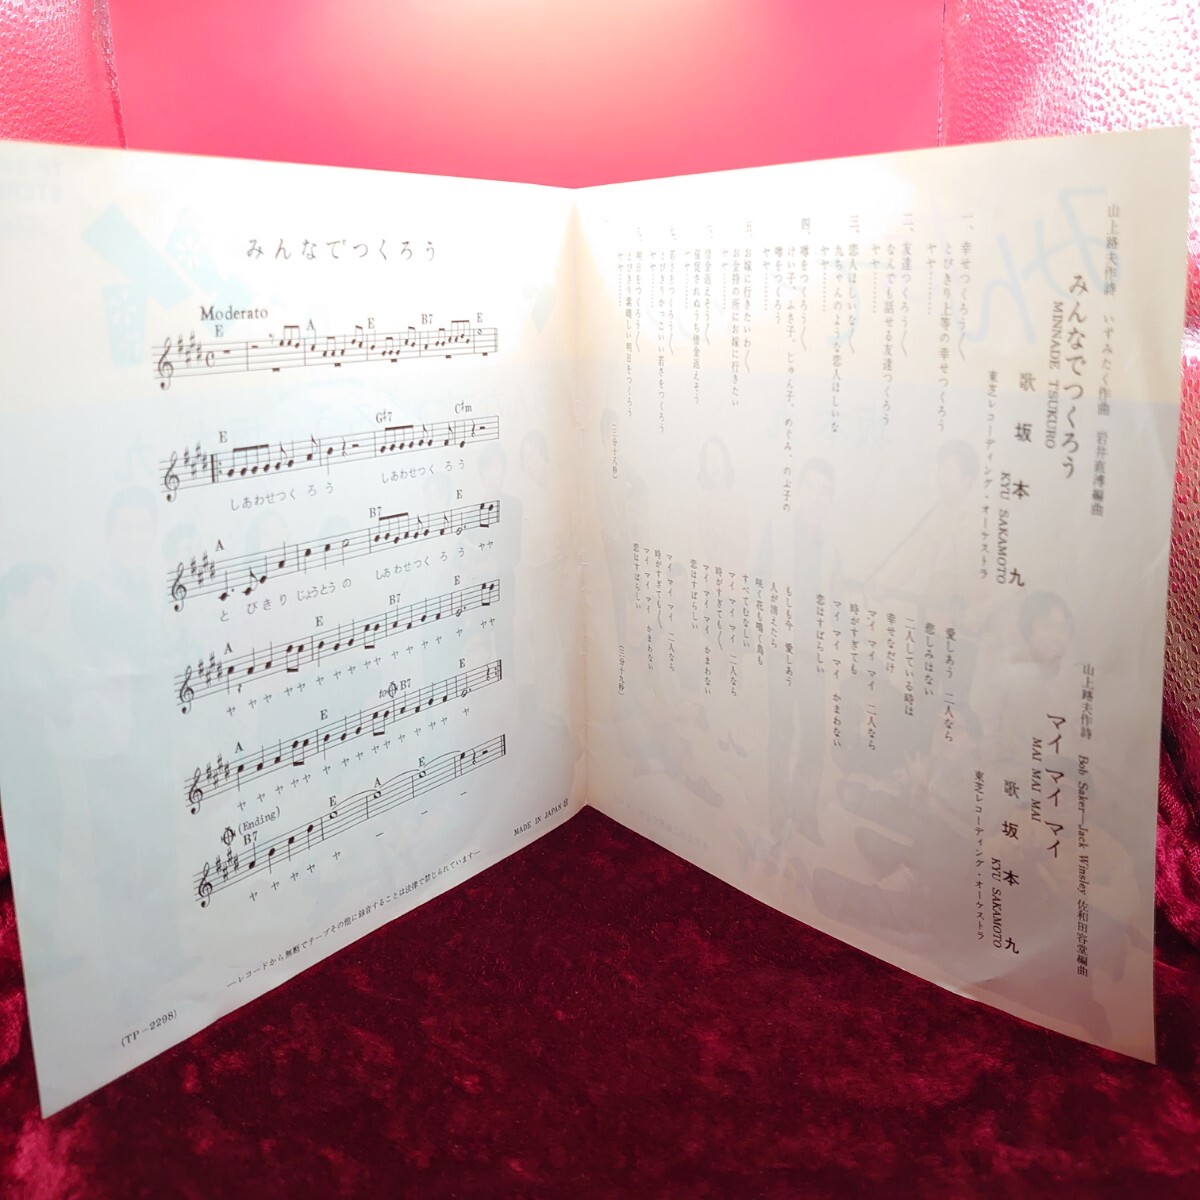 みんなでつくろう
Moderato
E A E B7 E
E G#7 C#m
しあわせつくろう しあわせつくろう
A B7 E
とびきりじょうとうの しあわせつくろう ヤヤ
A E B7 E
ヤ ヤ ヤ ヤ ヤ ヤ ヤ ヤ ヤ ヤ ヤ ヤ ヤヤ
A E to B7 E
ヤ ヤ ヤ ヤ ヤ ヤ ヤ ヤ ヤ ヤ ヤ ヤ
(Ending)
B7 E A E
ヤ ヤ ヤ ヤ ヤ ー ー ー
MADE IN JAPAN
―レコードから無断でテープその他に録音することは法律で禁じられています―
(TP-2298)
山上路夫作詩 いずみたく作曲 岩井直溥編曲
みんなでつくろう
MINNADE TSUKURO
歌 坂本九
KYU SAKAMOTO
東芝レコーディング・オーケストラ
一、幸せつくろう〱
とびきり上等の幸せつくろう
ヤヤ………
二、友達つくろう〱
なんでも話せる友達つくろう
ヤヤ………
三、恋人ほしいな〱
九ちゃんのような恋人ほしいな
ヤヤ………
四、噂をつくろう〱
けい子、ふさ子、じゅん子、めぐみ、のぶ子の
噂をつくろう
ヤヤ………
五、お嫁に行きたいわ〱
お金持の所にお嫁に行きたい
ヤヤ………
六、借金返えそう〱
催促されぬうち借金返えそう
ヤヤ………
七、若さをつくろう〱
とびきりかっこいい若さをつくろう
ヤヤ………
八、明日をつくろう〱
とびきり素晴しい明日をつくろう
ヤヤ………
(三分十六秒)
山上路夫作詩 Bob Saker―Jack Winsley 佐和田容堂編曲
マイ マイ マイ
MAI MAI MAI
歌 坂本九
KYU SAKAMOTO
東芝レコーディング・オーケストラ
愛しあう 二人なら
悲しみはない
二人している時は
幸せなだけ
マイ マイ マイ 二人なら
時がすぎても
マイ マイ マイ かまわない
恋はすばらしい
もしも今 愛しあう
人が消えたら
咲く花も鳴く鳥も
すべてむなしい
マイ マイ マイ 二人なら
時がすぎても〱
マイ マイ マイ かまわない
恋はすばらしい
マイ マイ マイ 二人なら
時がすぎても〱
マイ マイ マイ かまわない
恋はすばらしい
(二分十九秒)